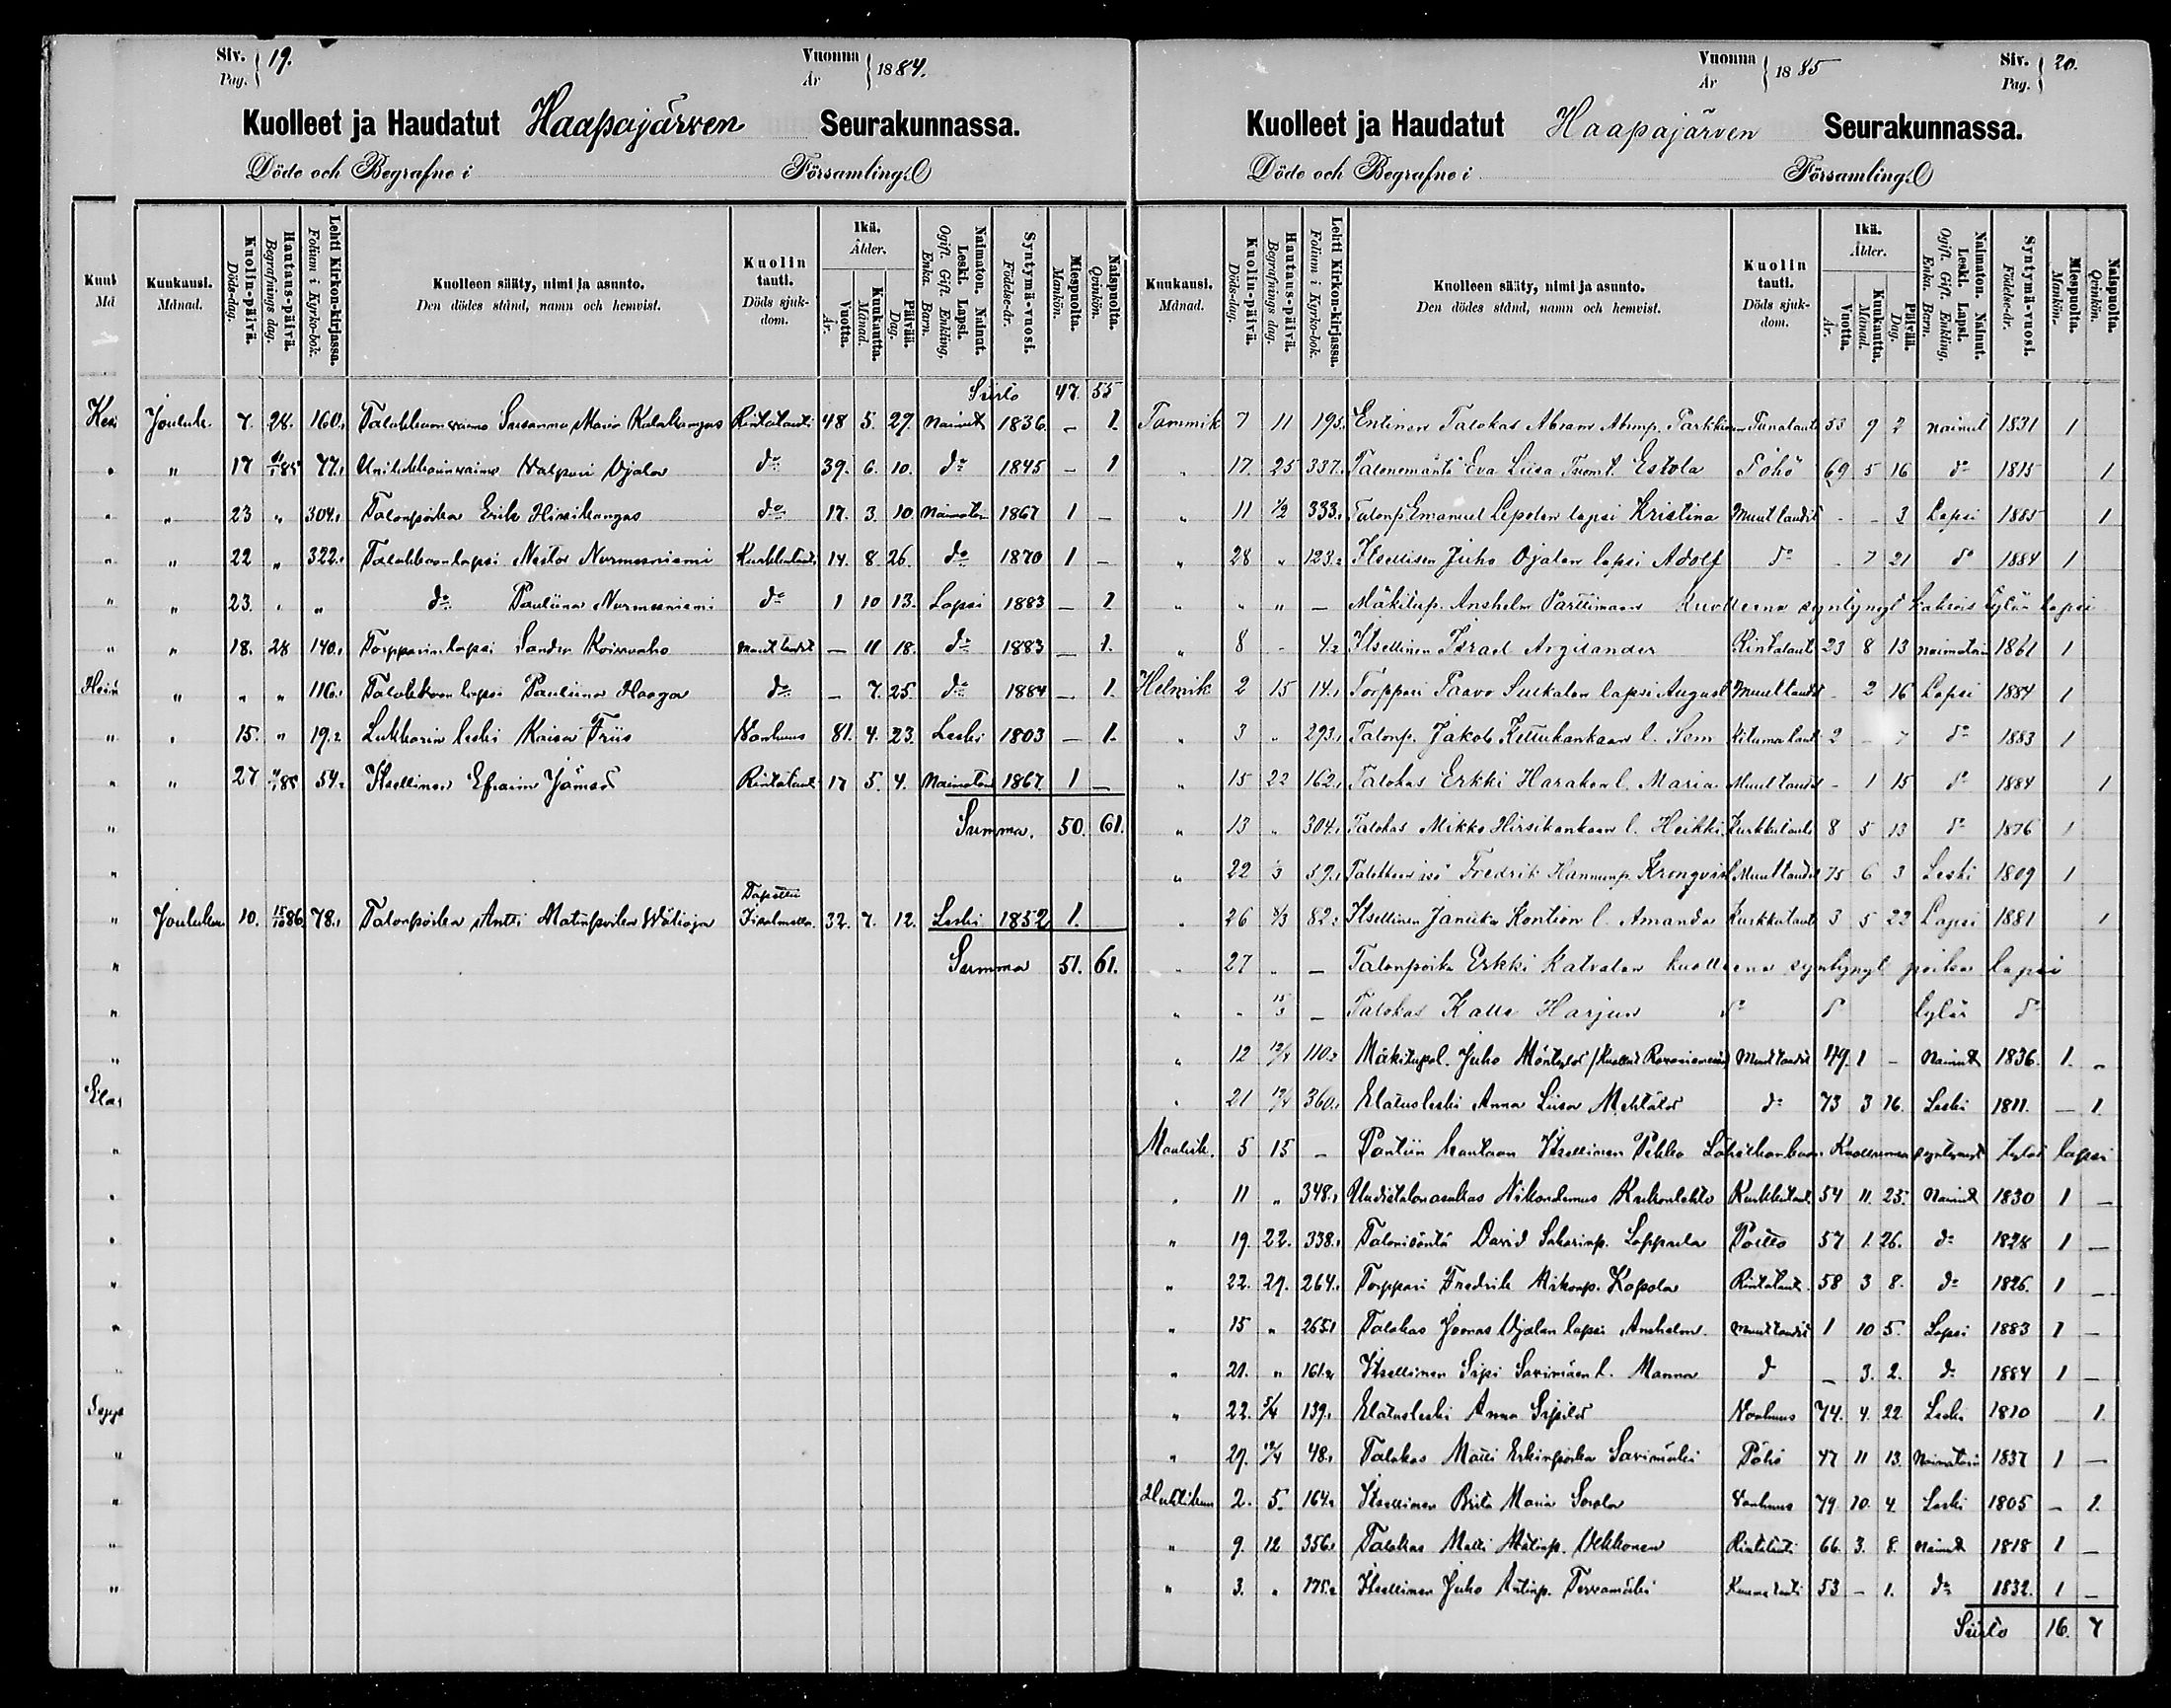 Siv. Pag. 19.
Vuonna År 1884.
Kuolleet ja Haudatut Haapajärven Seurakunnassa.
Döde och Begrafne i Församling.
Kuukausi. Månad.
Kuolin-päivä. Döds-dag.
Hautaus-päivä. Begrafnings dag.
Lehti Kirkon-kirjassa. Folium i Kyrko-bok.
Kuolleen sääty, nimi ja asunto. Den dödes stånd, namn och hemvist.
Kuolin tauti. Döds sjuk-dom.
Ikä. Ålder.
Vuotta. År.
Kuukautta. Månad.
Päivää. Dag.
Naimaton. Nainut. Leski. Lapsi. Ogift. Gift. Enkling, Enka. Barn.
Syntymä-vuosi. Födelse-år.
Miespuolta. Mankön.
Naispuolta. Qvinkön.
Siirto 47. 55
Jouluk. 7. 28. 160. Talokkaan vaimo Susanna Maria Kalakangas Rintatauti 48 5. 27. Nainut 1836. – 1.
" 17 77. Valpuri Ojala do 39. 6. 10. do 1845 – 1
" 23 " 304. Talonpoika Erik Hirsikangas do 17. 3. 10. Naimaton 1867 1 –
" 22 " 322. Talokkaan lapsi Nestor Nurmesniemi Kurkkutauti 14. 8. 26. do 1870 1 –
" 23. " " do Pauliina Nurmesniemi do 1 10 13. Lapsi 1883 – 1
" 18. 28 140. Torpparin lapsi Sandra Koivuaho Muut taudit – 11 18. do 1883 – 1.
" " " 116. Talokkaan lapsi Pauliina Haaga do – 7. 25. do 1884 – 1.
" 15. " 19. Lukkarin leski Kaisa Friis Vanhuus 81. 4. 23. Leski 1803 – 1.
" 27 54. Itsellinen Efraim Jämsä Rintataut 17 5. 4. Naimaton 1867 1 –
Summa. 50. 61.
Jouluken 10. 78. Talonpoika Antti Matinpoika Wälioja Tapettu 32. 7. 12. Leski 1852 1.
Summa 51. 61.
Vuonna År 1885
Siv. Pag. 20.
Kuolleet ja Haudatut Haapajärven Seurakunnassa.
Döde och Begrafne i Församling.
Kuukausi. Månad.
Kuolin-päivä. Döds-dag.
Hautaus-päivä. Begrafnings dag.
Lehti Kirkon-kirjassa. Folium i Kyrko-bok.
Kuolleen sääty, nimi ja asunto. Den dödes stånd, namn och hemvist.
Kuolin tauti. Döds sjuk-dom.
Ikä. Ålder.
Vuotta. År.
Kuukautta. Månad.
Päivää. Dag.
Naimaton. Nainut. Leski. Lapsi. Ogift. Gift. Enkling, Enka. Barn.
Syntymä-vuosi. Födelse-år.
Miespuolta. Mankön.
Naispuolta. Qvinkön.
Tammik 7 11 195. Entinen Talokas Abram Abramp. 53 9 2 nainut 1831 1
" 17. 25 337. Talonemäntä Eva Liisa Estola Pöhö 69 5 16 do 1815 1
" 11 1/2 333. Talonp Emanuel Lepolan lapsi Kristina Muut taudit - - 3 Lapsi 1885 1
" 28 " 123. Itsellisen Juho Ojalan lapsi Adolf do . 7 21 do 1884 1
" " " – Mäkitup. Anshelm Parttimaan kuolleena syntynyt tytär lapsi
" 8 - 4. Itsellinen Israel Argilander Rintataut 23 8 13 naimatoin 1861 1
Helmik 2 15 14. Torppari Paavo lapsi August Muut taudit - 2 16 Lapsi 1884 1
" 3 " 293. Talonp. Jakob Kettukankaan l. Sem 2 - 7 do 1883 1
" 15 22 162. Talokas Erkki Harakan l. Maria Muut taudit - 1 15 do 1884 1
" 13 " 304. Talokas Mikko Hirsikankaan l. Heikki Kurkkutauti 8 5 13 do 1876 1
" 22 59. Talokkaan isä Fredrik Hannunp. Krongvist Muut taudit 75 6 3 Leski 1809 1
" 26 82. Itsellinen Kontion l. Amanda Kurkkutaut 3 5 22 Lapsi 1881 1
" 27 " – Talonpoika Erkki Katvalan kuolleena syntynyt poika lapsi
" " 15/3 – Talokas Kalle Harjun do do tytär do
" 12 12/4 110. Mäkitupal. Juho Mäntylä Muut taudit 49. 1 – Nainut 1836. 1. "
" 21 12/4 360. Elätusleski Anna Liisa Mehtälä do 73 3 16. Leski 1811. — 1.
Maalisk. 5 15 – Pantiin hautaan Itsellinen Pekka Kuolleena syntynyt tytär lapsi
" 11 " 348. Uudistalon asukas Nikodemus Kukonlehto Kurkkutaut. 54 11. 25. Nainut 1830 1 –
" 19. 22. 338. Talonisäntä David Sakarinp. Loppula Poltto 57 1. 26. do 1828 1 —
" 22. 29. 264. Torppari Fredrik Kopola Rintataut. 58 3 8. do 1826. 1 —
" 15 " 265. Talokas Joonas Ojalan lapsi Anshelm Muut taudit 1 10 5. Lapsi 1883 1 —
" 21. " 161. Itsellinen Sipi Savimäen l. Manna d – 3. 2. do 1884 1 —
" 22. 5/4 139. Elätusleski Anna Sipilä Vanhuus 74. 4. 22 Leski 1810 1.
" 29. 12/4 48. Talokas Matti Erkinpoika Savimäki Pöhö 47 11 13. Naimatoin 1837 1 —
Huhtikuu 2. 5. 164. Itsellinen Brita Maria Sorola Vanhuus 79. 10. 4. Leski 1805 – 1.
" 9. 12 356. Talokas Matti Matinp. Ukkonen Rintatauti 66. 3. 8. Nainut 1818 1 —
" 3. " 175. Itsellinen Juho Antinp. Tervamäki Kuumetauti 53 – 1. do 1832. 1 –
Siirto 16. 7